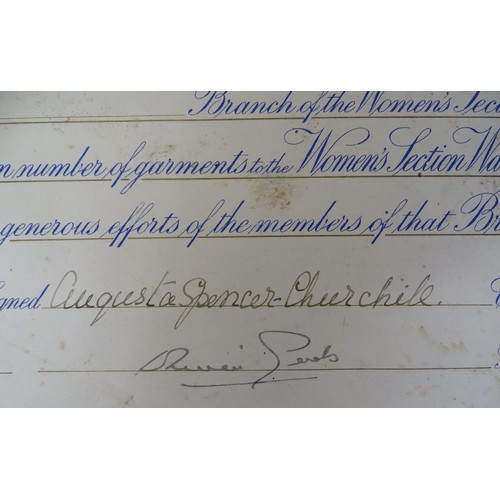 Branch of the Women's Sec
n number of garments to the Women's Section Wa
generous efforts of the members of that Br
gned Augusta Spencer-Churchill.